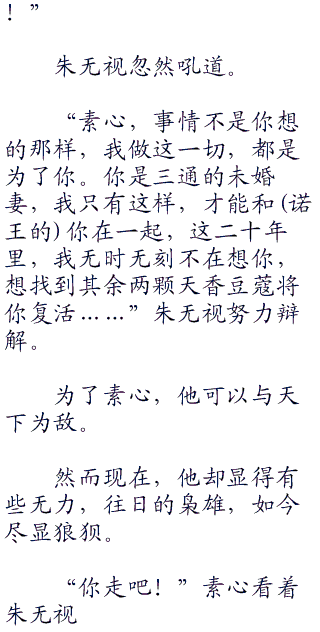 ！”
朱无视忽然吼道。
“素心，事情不是你想
的那样，我做这一切，都是
为了你。你是三通的未婚
妻，我只有这样，才能和(诺
王的)你在一起，这二十年
里，我无时无刻不在想你，
想找到其余两颗天香豆蔻将
你复活……”朱无视努力辩
解。
为了素心，他可以与天
下为敌。
然而现在，他却显得有
些无力，往日的枭雄，如今
尽显狼狈。
“你走吧！”素心看着
朱无视